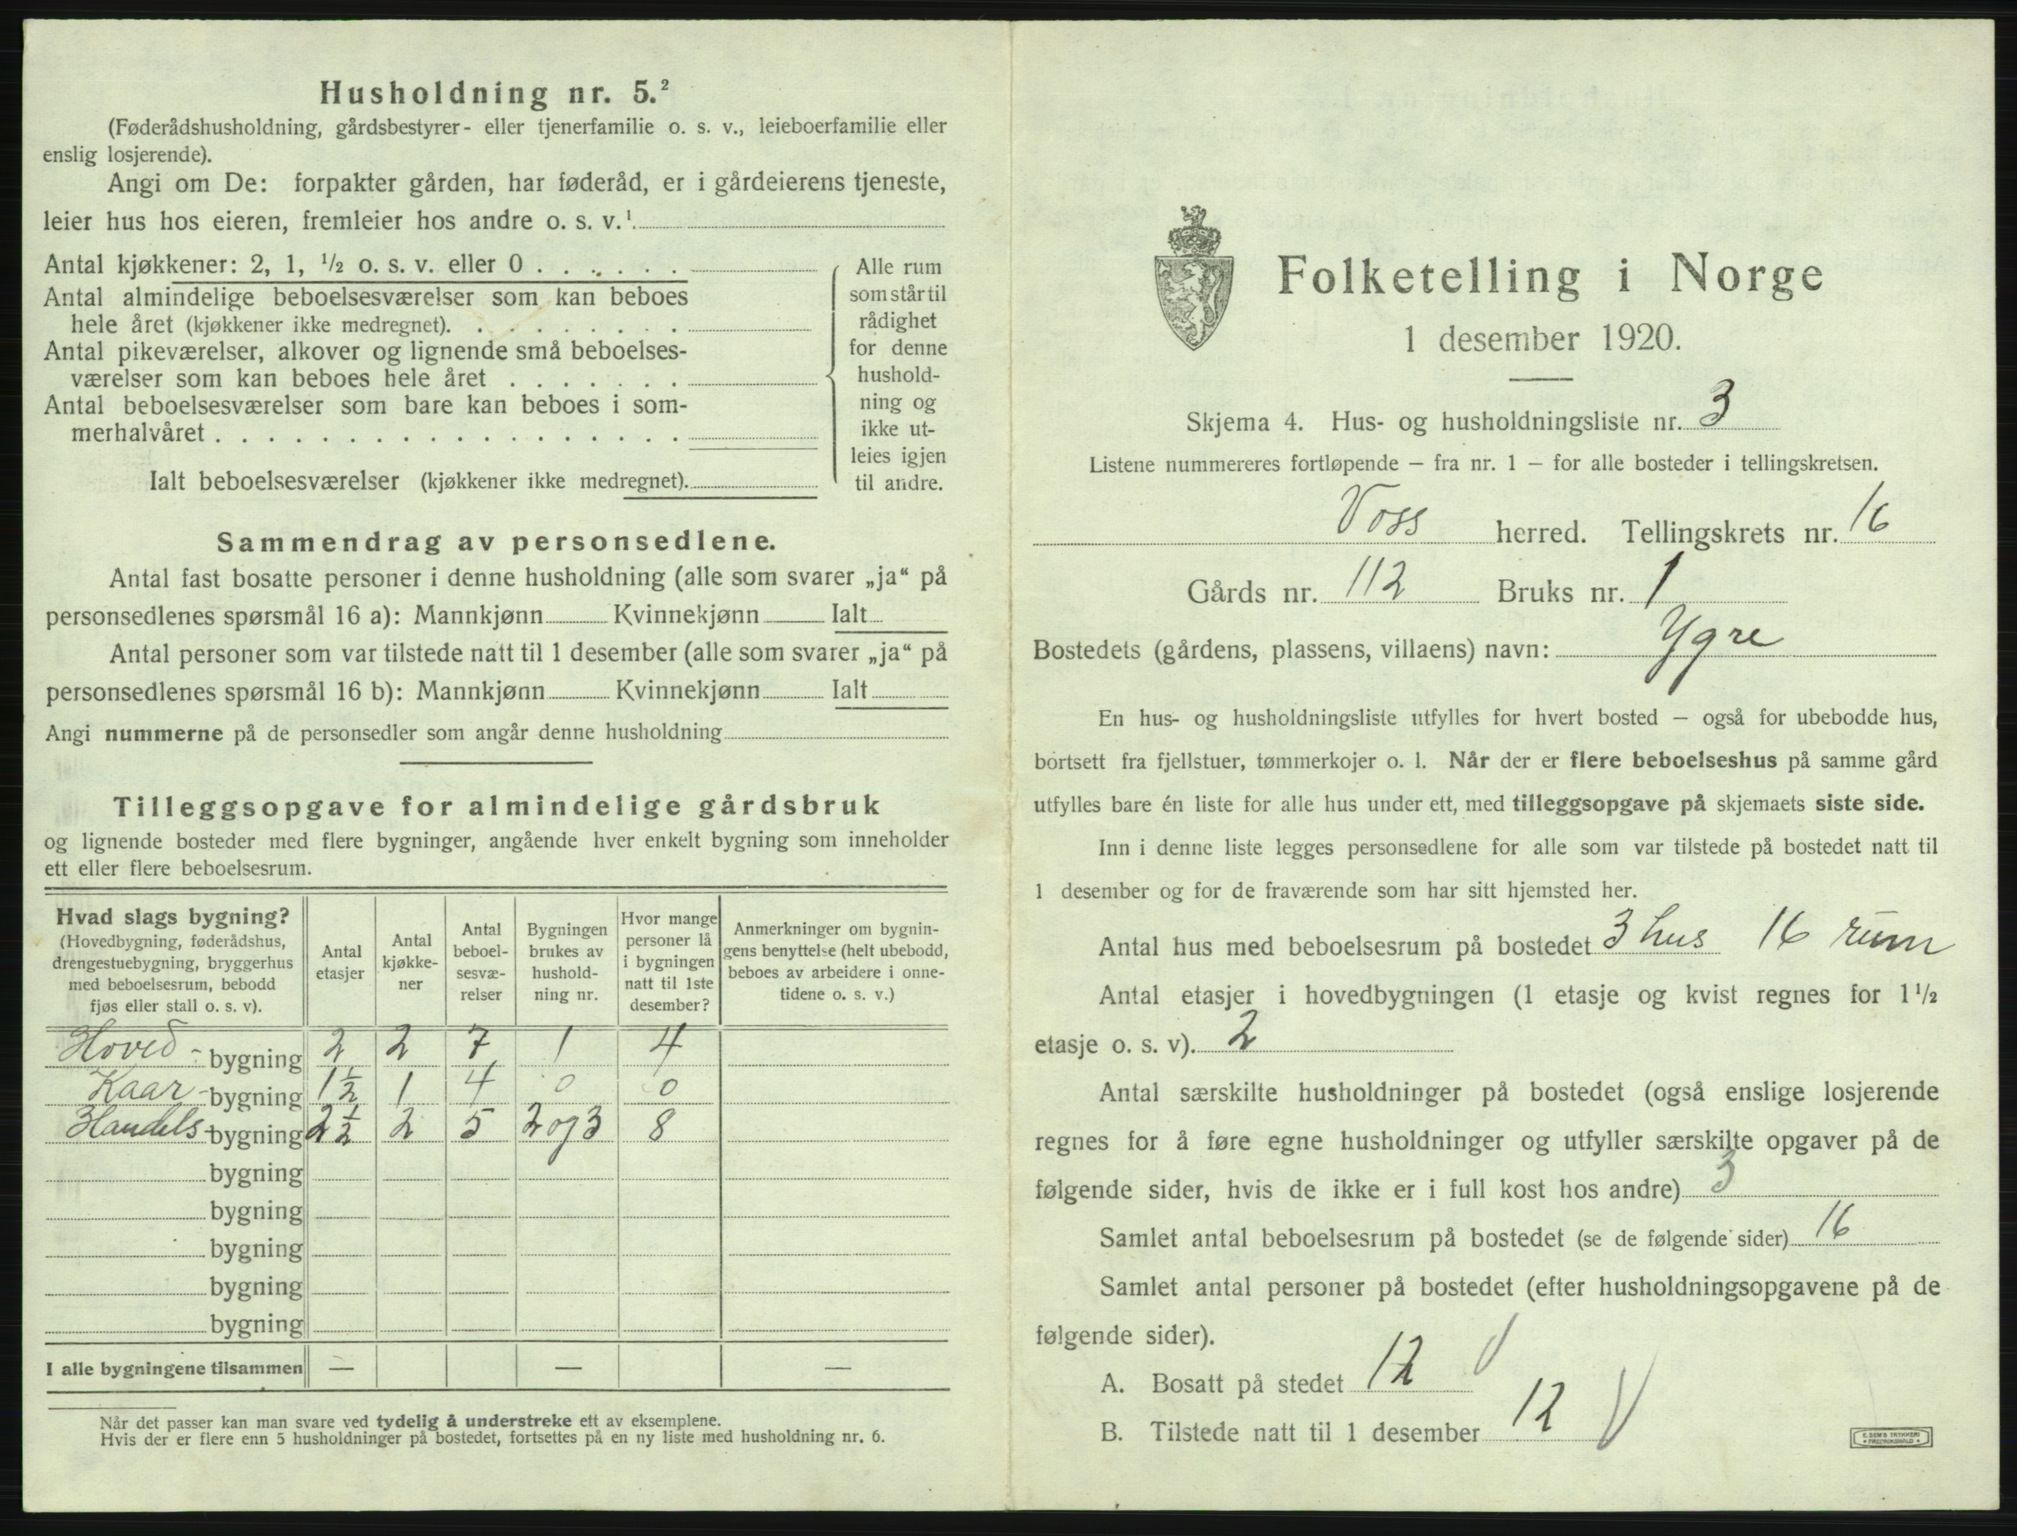 Husholdning nr. 5.²
(Føderådshusholdning, gårdsbestyrer- eller tjenerfamilie o. s. v., leieboerfamilie eller
enslig losjerende).
Angi om De: forpakter gården, har føderåd, er i gårdeierens tjeneste,
leier hus hos eieren, fremleier hos andre o. s. v.¹
Antal kjøkkener: 2, 1, ½ o. s. v. eller 0 . . . . . .
Antal almindelige beboelsesværelser som kan beboes
hele året (kjøkkener ikke medregnet). . . . . . . . .
Antal pikeværelser, alkover og lignende små beboelses-
værelser som kan beboes hele året . . . . . . .
Antal beboelsesværelser som bare kan beboes i som-
merhalvåret . . . . . . . . . . . . . . . . . .
Ialt beboelsesværelser (kjøkkener ikke medregnet).
Alle rum
som står til
rådighet
for denne
hushold-
ning og
ikke ut-
leies igjen
til andre.
Sammendrag av personsedlene.
Antal fast bosatte personer i denne husholdning (alle som svarer „ja“ på
personsedlenes spørsmål 16 a): Mannkjønn Kvinnekjønn Ialt
Antal personer som var tilstede natt til 1 desember (alle som svarer „ja“ på
personsedlenes spørsmål 16 b): Mannkjønn Kvinnekjønn Ialt
Angi nummerne på de personsedler som angår denne husholdning
Tilleggsopgave for almindelige gårdsbruk
og lignende bosteder med flere bygninger, angående hver enkelt bygning som inneholder
ett eller flere beboelsesrum.
Hvad slags bygning?
(Hovedbygning, føderådshus,
drengestuebygning, bryggerhus
med beboelsesrum, bebodd
fjøs eller stall o. s. v).
Antal
etasjer
Antal
kjøkke-
ner
Antal
beboel-
sesvæ-
relser
Bygningen
brukes av
hushold-
ning nr.
Hvor mange
personer lå
i bygningen
natt til 1ste
desember?
Anmerkninger om bygnin-
gens benyttelse (helt ubebodd,
beboes av arbeidere i onne-
tidene o. s. v.)
Hoved- bygning 2 2 7 1 4
Kaar- bygning 1½ 1 4 0 0
Handels- bygning 2½ 2 5 2 og 3 8
bygning
bygning
bygning
bygning
bygning
I alle bygningene tilsammen — — —
Når det passer kan man svare ved tydelig å understreke ett av eksemplene.
Hvis der er flere enn 5 husholdninger på bostedet, fortsettes på en ny liste med husholdning nr. 6.
Folketelling i Norge
1 desember 1920.
Skjema 4. Hus- og husholdningsliste nr. 3
Listene nummereres fortløpende – fra nr. 1 – for alle bosteder i tellingskretsen.
Voss herred. Tellingskrets nr. 16
Gårds nr. 112 Bruks nr. 1
Bostedets (gårdens, plassens, villaens) navn: Ygre
En hus- og husholdningsliste utfylles for hvert bosted – også for ubebodde hus,
bortsett fra fjellstuer, tømmerkojer o. l. Når der er flere beboelseshus på samme gård
utfylles bare én liste for alle hus under ett, med tilleggsopgave på skjemaets siste side.
Inn i denne liste legges personsedlene for alle som var tilstede på bostedet natt til
1 desember og for de fraværende som har sitt hjemsted her.
Antal hus med beboelsesrum på bostedet 3 hus 16 rum
Antal etasjer i hovedbygningen (1 etasje og kvist regnes for 1½
etasje o. s. v). 2
Antal særskilte husholdninger på bostedet (også enslige losjerende
regnes for å føre egne husholdninger og utfyller særskilte opgaver på de
følgende sider, hvis de ikke er i full kost hos andre) 3
Samlet antal beboelsesrum på bostedet (se de følgende sider) 16
Samlet antal personer på bostedet (efter husholdningsopgavene på de
følgende sider).
A. Bosatt på stedet 12
B. Tilstede natt til 1 desember 12
E. SEM'S TRYKKERI
FREDRIKSHALD